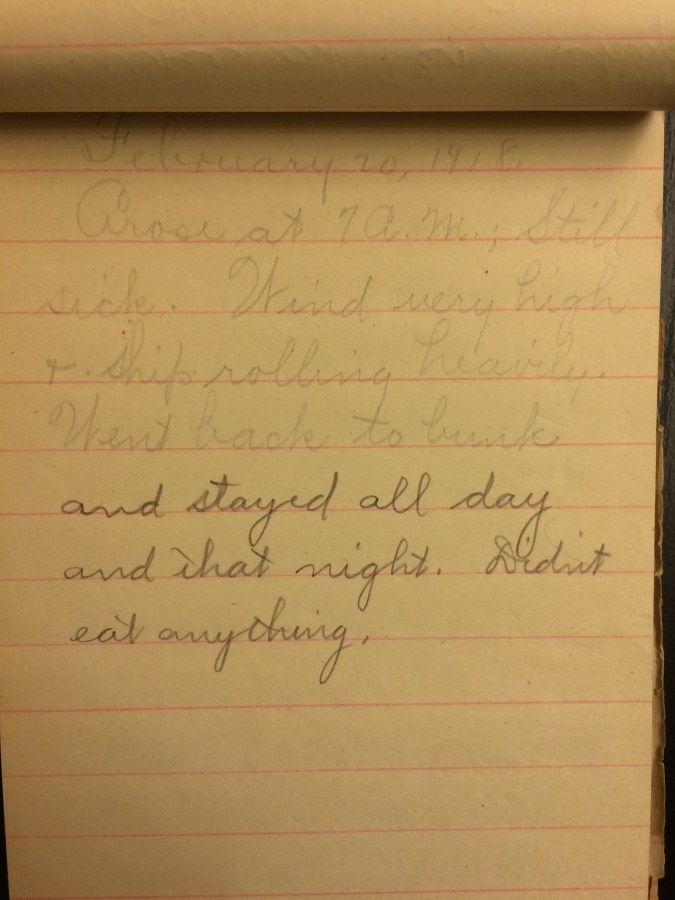 February 20, 1918.
Arose at 7 A.M.; Still
sick. Wind very high
+ ship rolling heavily.
Went back to bunk
and stayed all day
and that night. Didn't
eat anything.